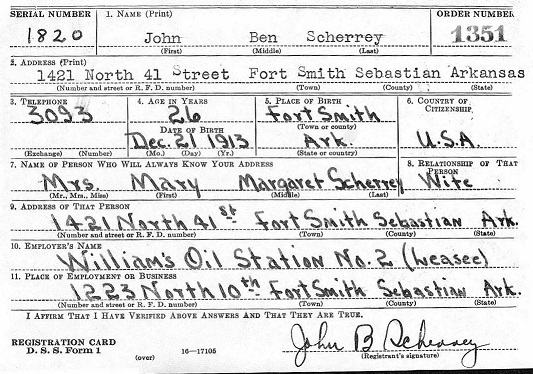 SERIAL NUMBER 1. NAME (Print) ORDER NUMBER
1820 John Ben Scherrey 1351
(First) (Middle) (Last)
2. ADDRESS (Print)
1421 North 41 Street Fort Smith Sebastian Arkansas
(Number and street or R. F. D. number) (Town) (County) (State)
3. TELEPHONE 4. AGE IN YEARS 5. PLACE OF BIRTH 6. COUNTRY OF CITIZENSHIP
3093 26 Fort Smith
DATE OF BIRTH (Town or county)
Dec. 21 1913 Ark. U.S.A.
(Exchange) (Number) (Mo.) (Day) (Yr.) (State or country)
7. NAME OF PERSON WHO WILL ALWAYS KNOW YOUR ADDRESS 8. RELATIONSHIP OF THAT PERSON
Mrs. Mary Margaret Scherrey Wife
(Mr., Mrs., Miss) (First) (Middle) (Last)
9. ADDRESS OF THAT PERSON
1421 North 41 st Fort Smith Sebastian Ark.
(Number and street or R. F. D. number) (Town) (County) (State)
10. EMPLOYER'S NAME
William's Oil Station No. 2 (Leasee)
11. PLACE OF EMPLOYMENT OR BUSINESS
1223 North 10th Fort Smith Sebastian Ark.
(Number and street or R. F. D. number) (Town) (County) (State)
I AFFIRM THAT I HAVE VERIFIED ABOVE ANSWERS AND THAT THEY ARE TRUE.
REGISTRATION CARD John B Scherrey
D. S. S. Form 1 (over) 16—17105 (Registrant's signature)